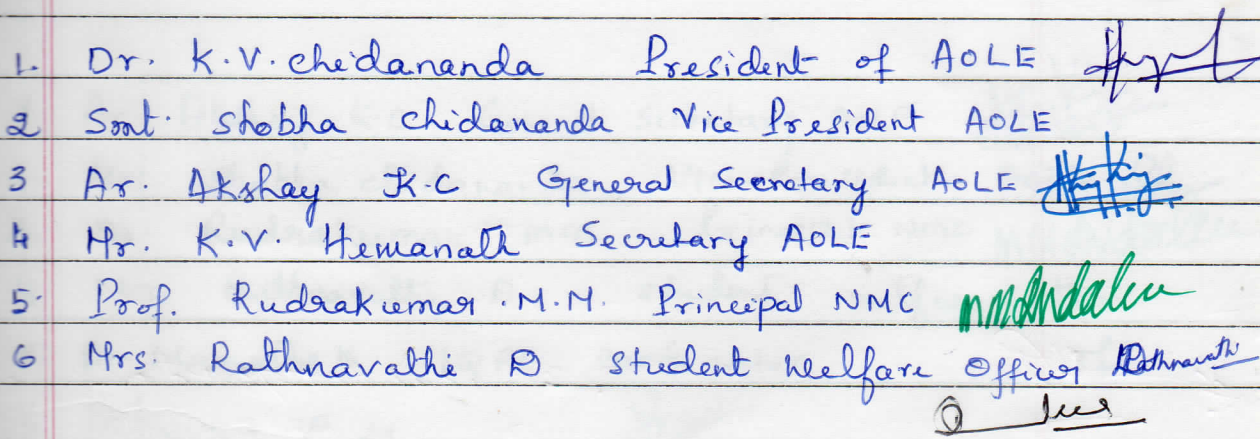 1. Dr. K.V. Chidananda President of AOLE
2 Smt. Shobha Chidananda Vice President AOLE
3 Ar. Akshay K.C General Secretary AOLE
4 Mr. K.V. Hemanath Secretary AOLE
5. Prof. Rudrakumar .M.M. Principal NMC
6 Mrs. Rathnavathi D Student Welfare Officer Rathnavathi